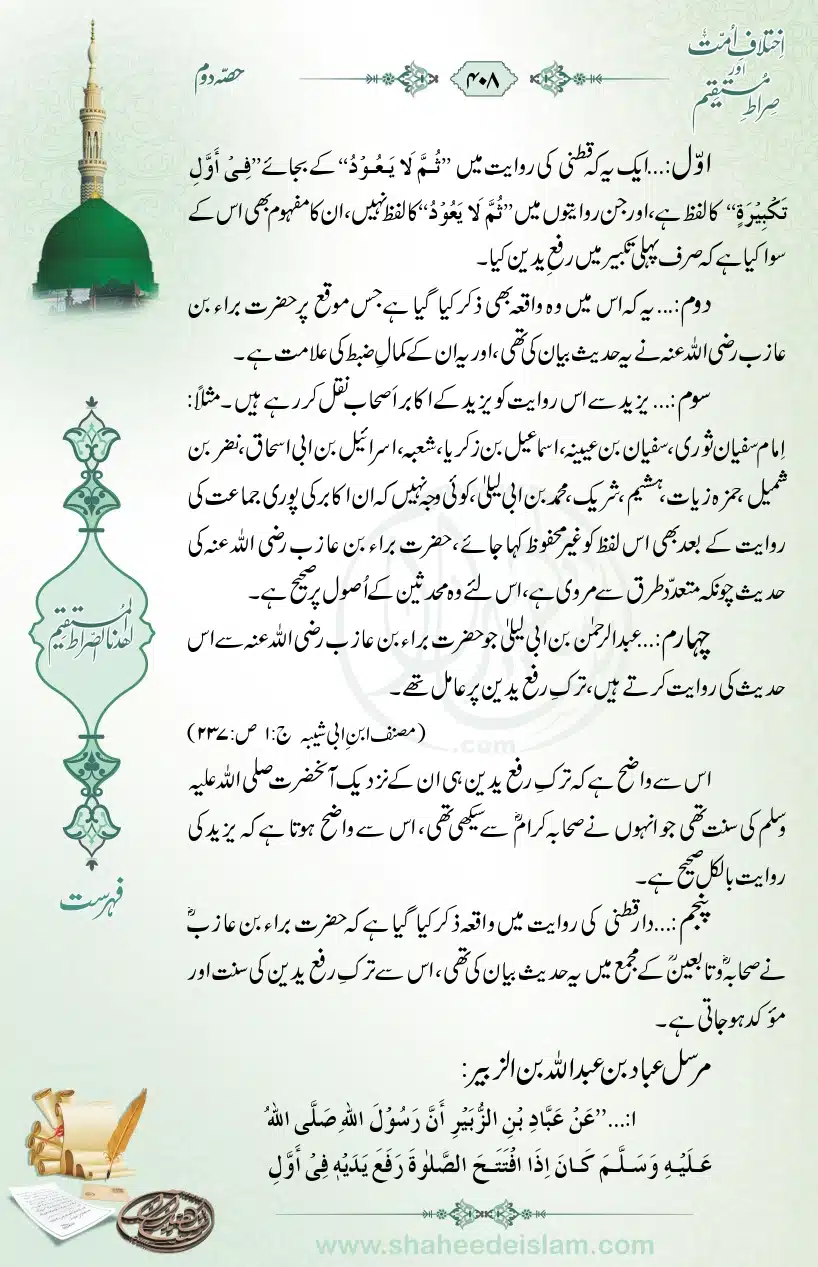 اِختلافِ اُمّت
اور
صِراطِ مُستقیم
۴۰۸
حصّہ دوم
اوّل:...ایک یہ کہ قطنی کی روایت میں ”ثُمَّ لَا يَعُوْدُ“ کے بجائے ”فِیْ أَوَّلِ
تَکْبِيْرَةٍ“ کا لفظ ہے، اور جن روایتوں میں ”ثُمَّ لَا يَعُوْدُ“ کا لفظ نہیں، ان کا مفہوم بھی اس کے
سوا کیا ہے کہ صرف پہلی تکبیر میں رفعِ یدین کیا۔
دوم:... یہ کہ اس میں وہ واقعہ بھی ذکر کیا گیا ہے جس موقع پر حضرت براء بن
عازب رضی اللہ عنہ نے یہ حدیث بیان کی تھی، اور یہ ان کے کمالِ ضبط کی علامت ہے۔
سوم:... یزید سے اس روایت کو یزید کے اکابر اَصحاب نقل کر رہے ہیں۔ مثلاً:
اِمام سفیان ثوری، سفیان بن عیینہ، اسماعیل بن زکریا، شعبہ، اسرائیل بن ابی اسحاق، نضر بن
شمیل، حمزہ زیات، ہشیم، شریک، محمد بن ابی لیلیٰ، کوئی وجہ نہیں کہ ان اکابر کی پوری جماعت کی
روایت کے بعد بھی اس لفظ کو غیر محفوظ کہا جائے، حضرت براء بن عازب رضی اللہ عنہ کی
حدیث چونکہ متعدّد طرق سے مروی ہے، اس لئے وہ محدثین کے اُصول پر صحیح ہے۔
چہارم:... عبدالرحمٰن بن ابی لیلیٰ جو حضرت براء بن عازب رضی اللہ عنہ سے اس
حدیث کی روایت کرتے ہیں، ترکِ رفع یدین پر عامل تھے۔
(مصنف ابنِ ابی شیبہ ج:۱ ص:۲۳۷)
اس سے واضح ہے کہ ترکِ رفع یدین ہی ان کے نزدیک آنحضرت صلی اللہ علیہ
وسلم کی سنت تھی جو انہوں نے صحابہ کرامؓ سے سیکھی تھی، اس سے واضح ہوتا ہے کہ یزید کی
روایت بالکل صحیح ہے۔
پنجم:... دارقطنی کی روایت میں واقعہ ذکر کیا گیا ہے کہ حضرت براء بن عازبؓ
نے صحابہؓ و تابعینؒ کے مجمع میں یہ حدیث بیان کی تھی، اس سے ترکِ رفع یدین کی سنت اور
مؤکد ہوجاتی ہے۔
مرسل عباد بن عبداللہ بن الزبیر:
۱:... ”عَنْ عَبَّادِ بْنِ الزُّبَيْرِ أَنَّ رَسُوْلَ اللهِ صَلَّى اللهُ
عَلَيْهِ وَسَلَّمَ كَانَ اِذَا افْتَتَحَ الصَّلٰوةَ رَفَعَ يَدَيْهِ فِىْ أَوَّلِ
اهدنا الصراط المستقیم
فہرست
.com
www.shaheedeislam.com